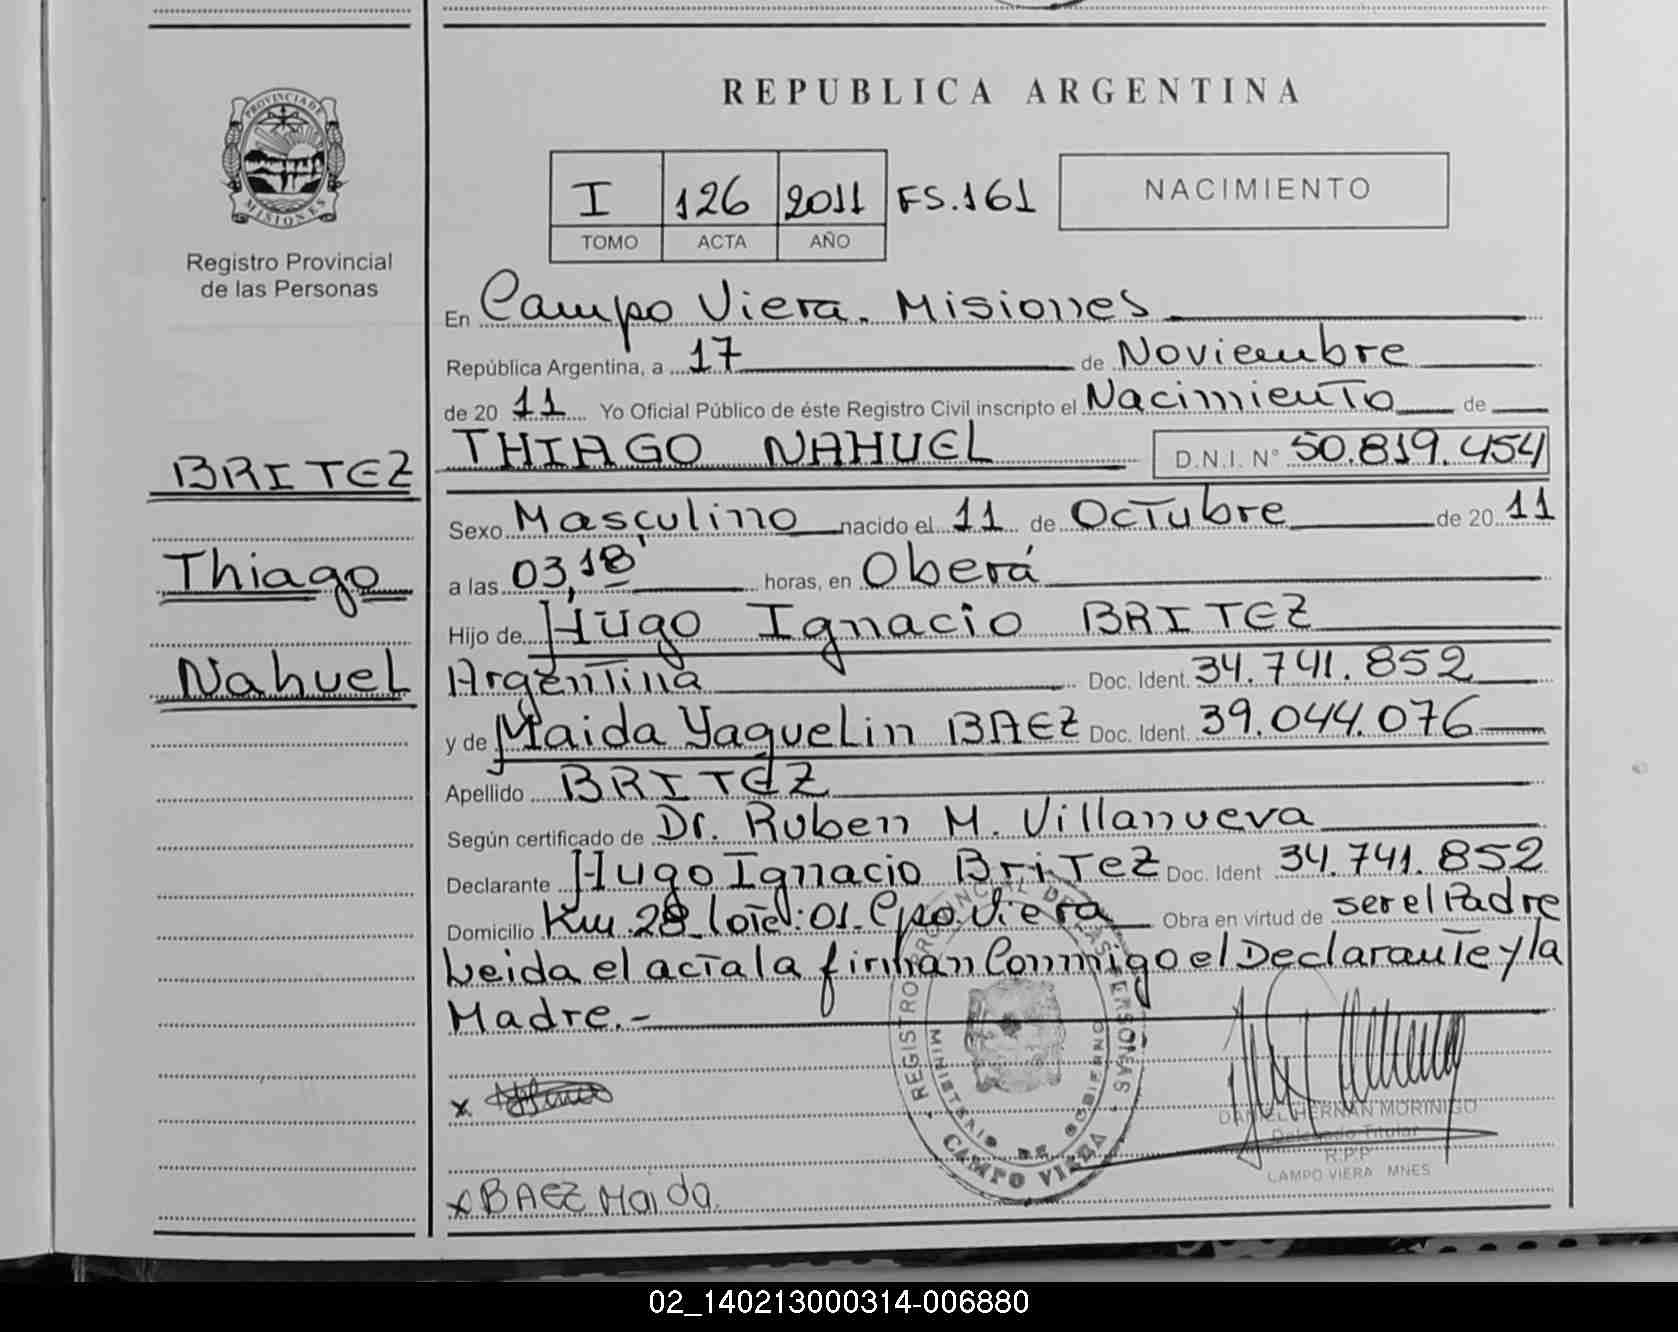 PROVINCIA DE
MISIONES
Registro Provincial
de las Personas
BRITEZ
Thiago
Nahuel
REPUBLICA ARGENTINA
I 126 2011 FS.161
TOMO ACTA AÑO
NACIMIENTO
En Campo Viera. Misiones
República Argentina, a 17 de Noviembre
de 20 11 Yo Oficial Público de éste Registro Civil inscripto el Nacimiento de
THIAGO NAHUEL D.N.I. N° 50.819.454
Sexo Masculino nacido el 11 de Octubre de 20 11
a las 03,18' horas, en Oberá
Hijo de Hugo Ignacio BRITEZ
Argentina Doc. Ident. 34.741.852
y de Maida Yaquelin BAEZ Doc. Ident. 39.044.076
Apellido BRITEZ
Según certificado de Dr. Ruben M. Villanueva
Declarante Hugo Ignacio Britez Doc. Ident 34.741.852
Domicilio Km 28 lote:01. Cpo. Viera Obra en virtud de ser el Padre
Leida el acta la firman Conmigo el Declarante y la
Madre.-
x
x BAEZ Maida.
REGISTRO PROVINCIAL DE LAS PERSONAS
MINISTERIO DE GOBIERNO
CAMPO VIERA
DANIEL HERNAN MORINIGO
Delegado Titular
R.P.P
CAMPO VIERA MNES
02_140213000314-006880